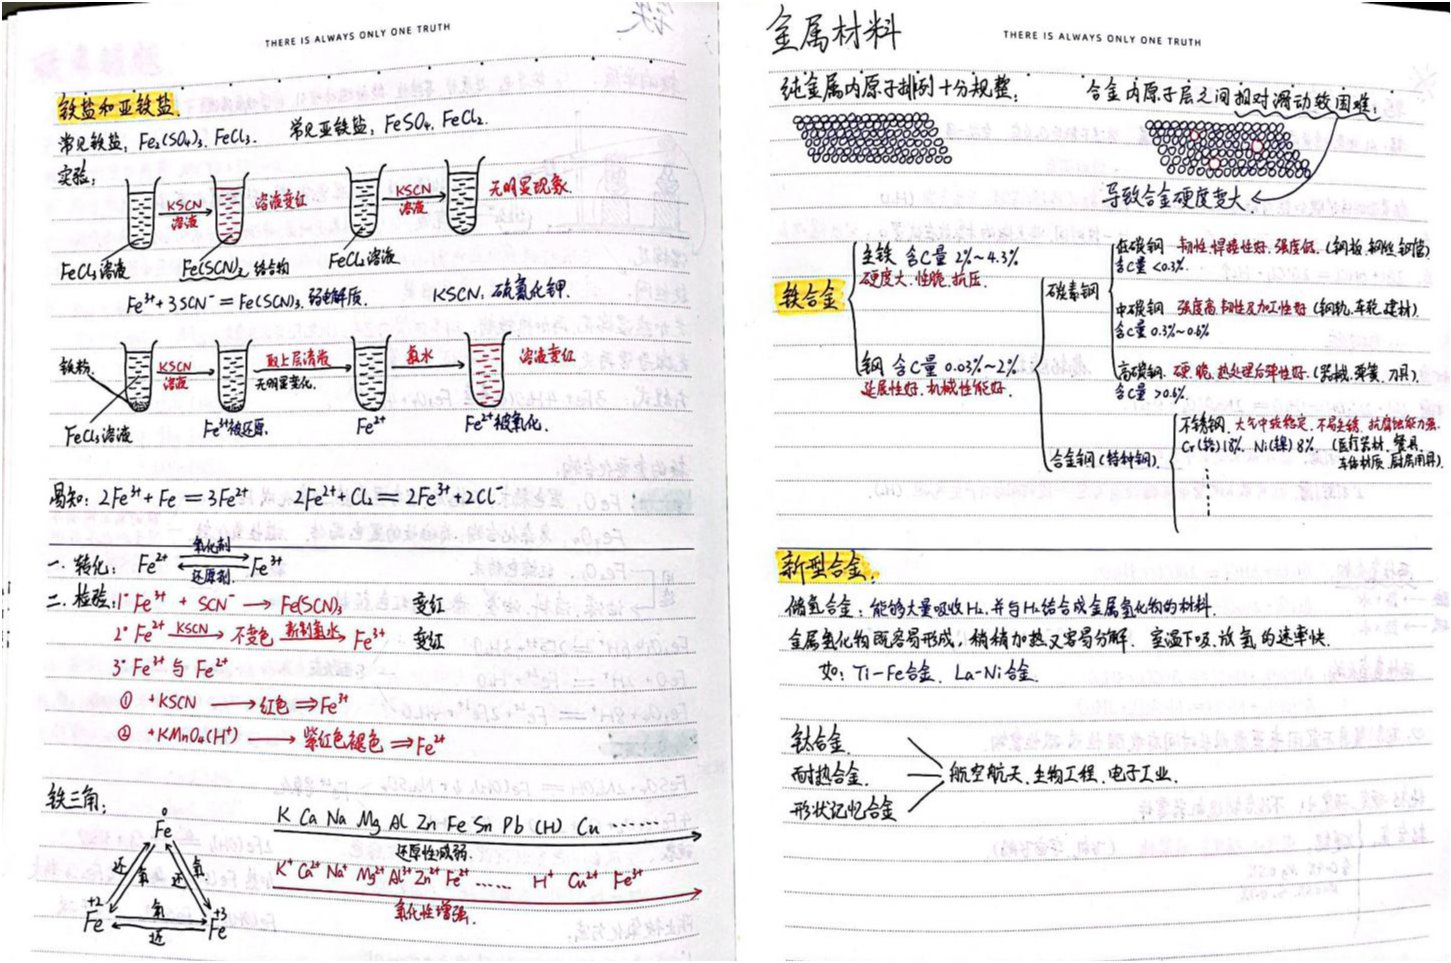 铁
THERE IS ALWAYS ONLY ONE TRUTH
铁盐和亚铁盐.
常见铁盐: Fe₂(SO₄)₃. FeCl₃. 常见亚铁盐: FeSO₄. FeCl₂.
实验:
KSCN 溶液 溶液变红 KSCN 溶液 无明显现象.
FeCl₃溶液 Fe(SCN)₂ 络合物 FeCl₂溶液.
Fe³⁺+3SCN⁻=Fe(SCN)₃. 弱电解质. KSCN: 硫氰化钾.
铁粉. KSCN 溶液 取上层清液 无明显变化. 氯水 溶液变红
FeCl₃溶液 Fe³⁺被还原. Fe²⁺ Fe²⁺被氧化.
易知: 2Fe³⁺+Fe=3Fe²⁺ 2Fe²⁺+Cl₂=2Fe³⁺+2Cl⁻
一. 转化: Fe²⁺ 氧化剂 还原剂 Fe³⁺
二. 检验: 1° Fe³⁺ + SCN⁻ → Fe(SCN)₃ 变红
2° Fe²⁺ KSCN→ 不变色 新制氯水→ Fe³⁺ 变红
3° Fe³⁺ 与 Fe²⁺
① +KSCN → 红色 ⇒ Fe³⁺
② +KMnO₄(H⁺) → 紫红色褪色 ⇒ Fe²⁺
铁三角:
0
Fe
还 氧 还 氧
+2 Fe 氧 还 +3 Fe
K Ca Na Mg Al Zn Fe Sn Pb (H) Cu ······
还原性减弱.
K⁺ Ca²⁺ Na⁺ Mg²⁺ Al³⁺ Zn²⁺ Fe²⁺ ······ H⁺ Cu²⁺ Fe³⁺
氧化性增强.
金属材料
THERE IS ALWAYS ONLY ONE TRUTH
纯金属内原子排列十分规整; 合金内原子层之间相对滑动较困难;
导致合金硬度变大
铁合金
生铁 含C量 2%~4.3%
硬度大. 性脆. 抗压.
钢 含C量 0.03%~2%
延展性好. 机械性能好.
碳素钢
低碳钢 韧性.焊接性好. 强度低. (钢板.钢丝.钢管)
含C量 <0.3%.
中碳钢 强度高.韧性及加工性好 (钢轨.车轮.建材).
含C量 0.3%~0.6%
高碳钢. 硬. 脆. 热处理后弹性好. (器械.弹簧.刀具).
含C量 >0.6%.
合金钢(特种钢).
不锈钢. 大气中较稳定. 不易生锈. 抗腐蚀能力强.
Cr(铬)18%. Ni(镍)8%. (医疗器材. 餐具.
车体材质. 厨房用具).
新型合金:
储氢合金: 能够大量吸收H₂.并与H₂结合成金属氢化物的材料.
金属氢化物既容易形成, 稍稍加热又容易分解. 室温下吸.放氢的速率快.
如: Ti-Fe合金. La-Ni合金.
钛合金.
耐热合金. 航空航天.生物工程.电子工业.
形状记忆合金